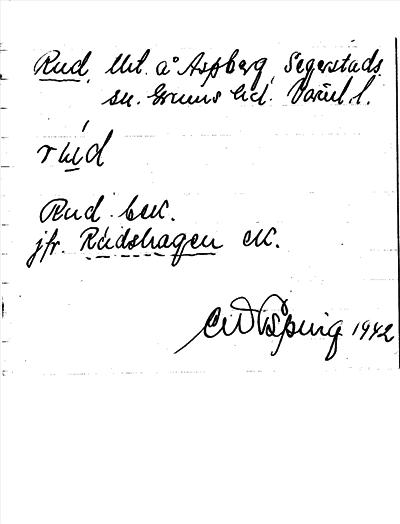 Rud, Utl. å Aspberg, Segerstads
sn. Grums hd. Värml. l.
rúd
Rud bek.
jfr. Rudshagen ek.
1942